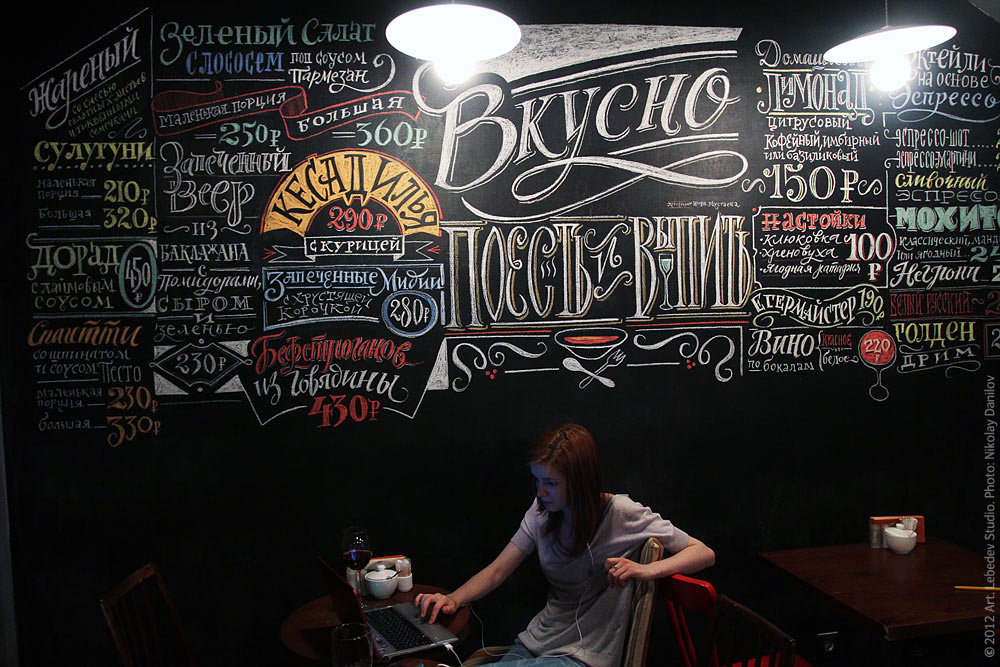 Жареный
со смесью
сулугуни
маленькая
порция — 210₽
большая 320₽
Дорадо
с лаймовым
соусом
450
Спагетти
со шпинатом
и соусом Песто
маленькая
порция — 230₽
большая — 330₽
Зеленый Салат
с лососем
под соусом
Пармезан
маленькая порция
= 250₽
большая
= 360₽
Запеченный
Веер
из
баклажана
с
помидорами,
сыром
и
зеленью
230₽
Кесадилья
290₽
с курицей
Запеченные Мидии
с хрустящей
корочкой
280₽
Бефстроганов
из говядины
430₽
Вкусно
Поесть и Выпить
Домашний
Лимонад
цитрусовый
кофейный, имбирный
или базиликовый
150₽
Настойки
клюковка
хреновуха
ягодная
100
₽
Егермайстер 190
Вино
по бокалам
красное
белое
220
₽
Коктейли
на основе
Эспрессо
эспрессо-шот
эспрессо-мартини
сливочный
эспрессо
Мохито
классический,
или ягодный
Негрони
белый русский
Голден
дрим
© 2012 Art. Lebedev Studio. Photo: Nikolay Danilov